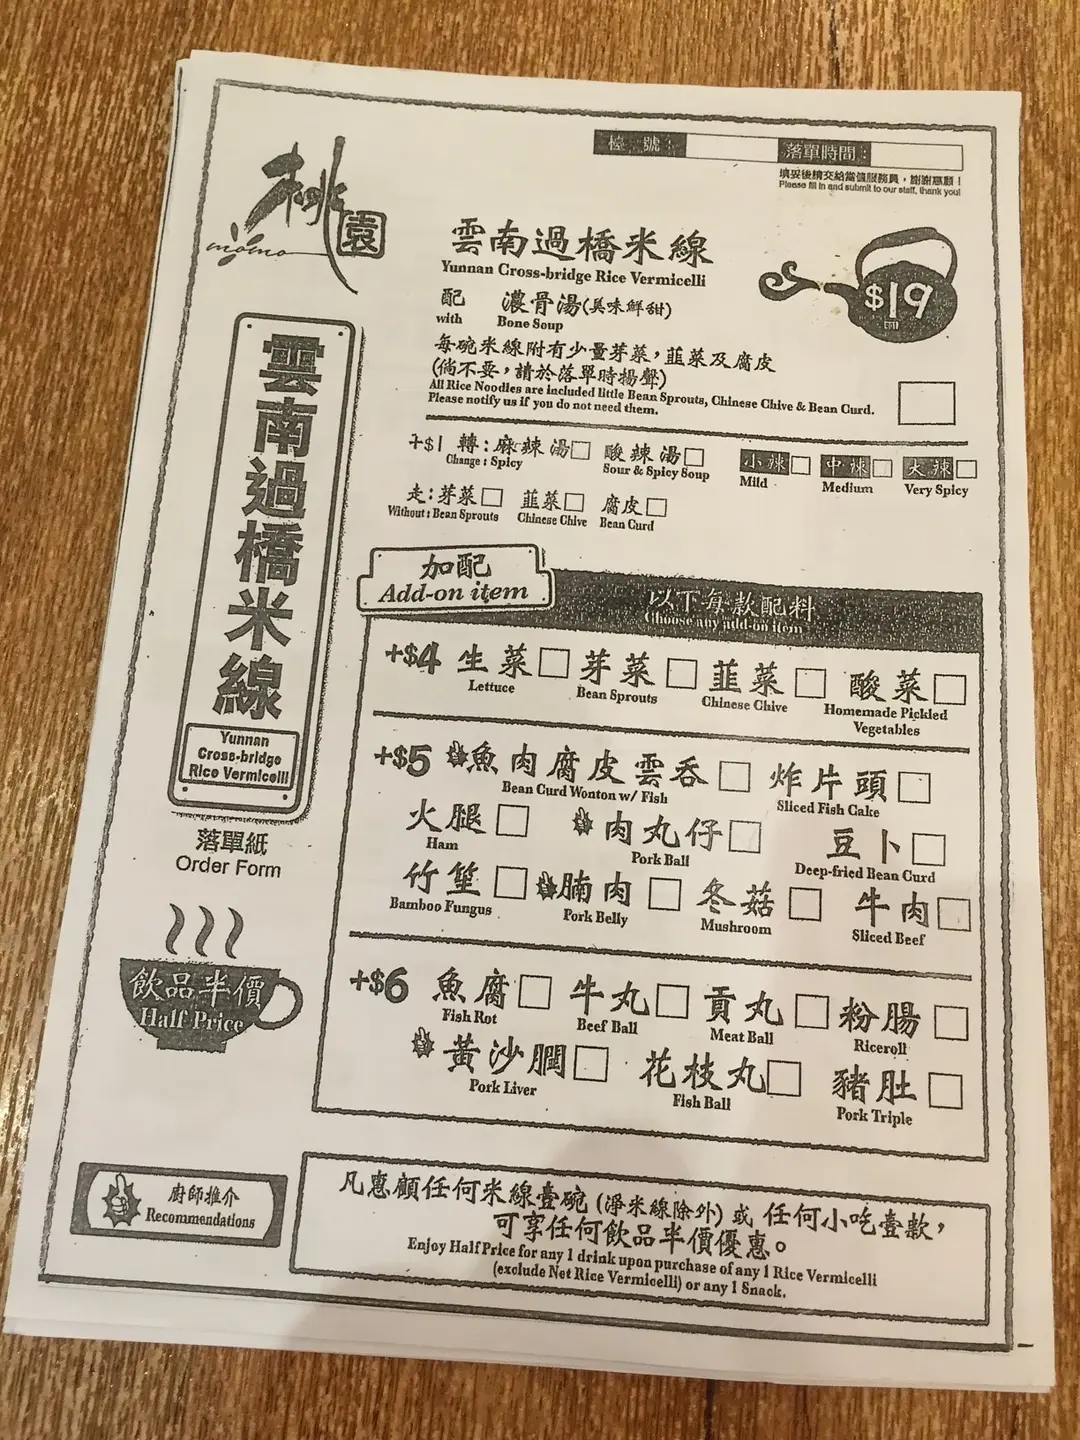 檯 號：
落單時間：
填妥後請交給當值服務員，謝謝惠顧！
Please fill in and submit to our staff, thank you!
桃園
mómo
雲南過橋米線
Yunnan Cross-bridge Rice Vermicelli
$19
配 濃骨湯(美味鮮甜)
with Bone Soup
每碗米線附有少量芽菜，韮菜及腐皮
(倘不要，請於落單時揚聲)
All Rice Noodles are included little Bean Sprouts, Chinese Chive & Bean Curd.
Please notify us if you do not need them.
+$1 轉：麻辣湯 酸辣湯 小辣 中辣 大辣
Change : Spicy Sour & Spicy Soup Mild Medium Very Spicy
走：芽菜 韮菜 腐皮
Without : Bean Sprouts Chinese Chive Bean Curd
雲南過橋米線
Yunnan
Cross-bridge
Rice Vermicelli
落單紙
Order Form
飲品半價
Half Price
加配
Add-on item
以下每款配料
Choose any add-on item
+$4 生菜 芽菜 韮菜 酸菜
Lettuce Bean Sprouts Chinese Chive Homemade Pickled
Vegetables
+$5 魚肉腐皮雲吞 炸片頭
Bean Curd Wonton w/ Fish Sliced Fish Cake
火腿 肉丸仔 豆卜
Ham Pork Ball Deep-fried Bean Curd
竹笙 腩肉 冬菇 牛肉
Bamboo Fungus Pork Belly Mushroom Sliced Beef
+$6 魚腐 牛丸 貢丸 粉腸
Fish Rot Beef Ball Meat Ball Riceroll
黃沙膶 花枝丸 豬肚
Pork Liver Fish Ball Pork Triple
廚師推介
Recommendations
凡惠顧任何米線壹碗 (淨米線除外) 或 任何小吃壹款，
可享任何飲品半價優惠。
Enjoy Half Price for any 1 drink upon purchase of any 1 Rice Vermicelli
(exclude Net Rice Vermicelli) or any 1 Snack.